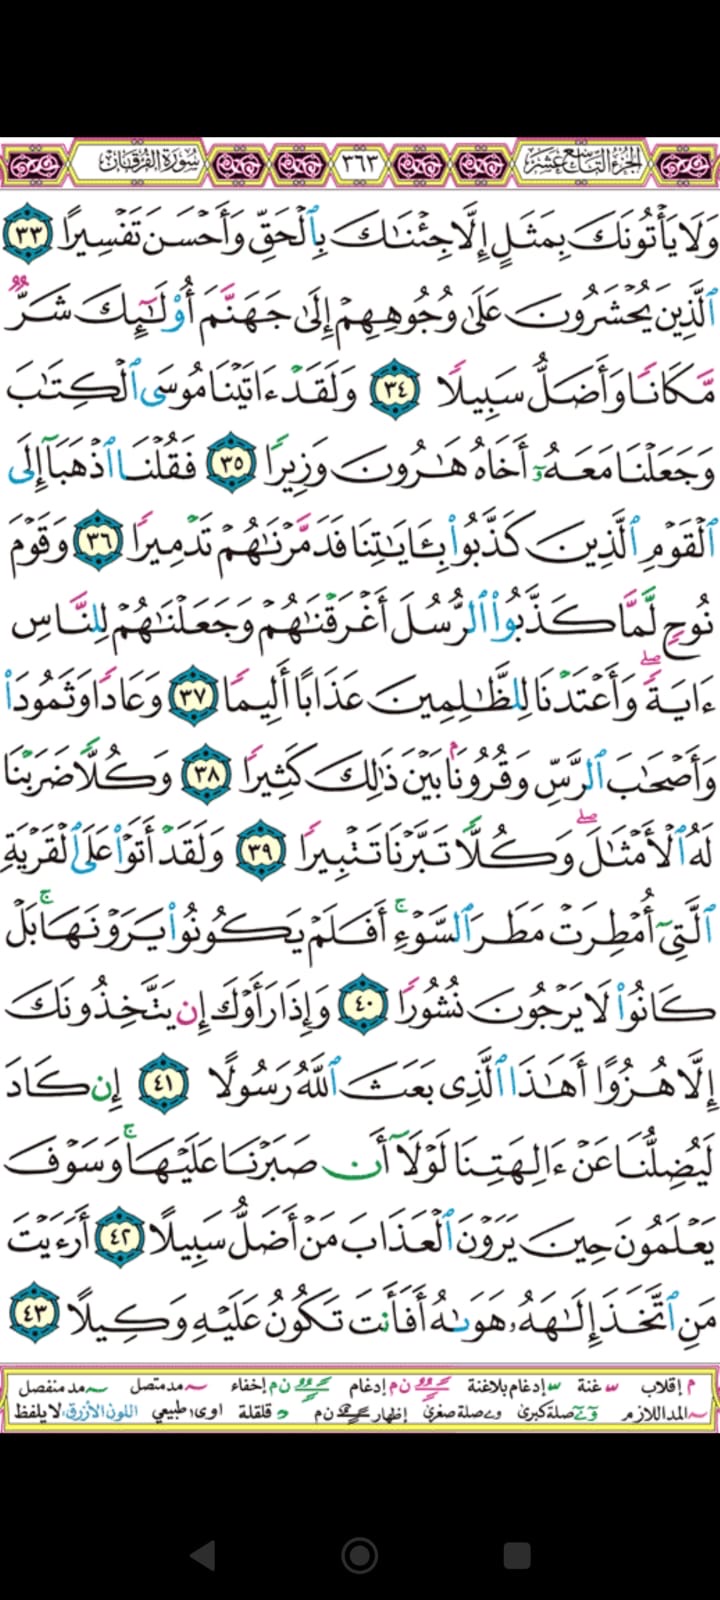 الجزء التاسع عشر ٣٦٣ سورة الفرقان
وَلَا يَأْتُونَكَ بِمَثَلٍ إِلَّا جِئْنَٰكَ بِٱلْحَقِّ وَأَحْسَنَ تَفْسِيرًا ٣٣
ٱلَّذِينَ يُحْشَرُونَ عَلَىٰ وُجُوهِهِمْ إِلَىٰ جَهَنَّمَ أُو۟لَٰٓئِكَ شَرٌّ
مَّكَانًا وَأَضَلُّ سَبِيلًا ٣٤ وَلَقَدْ ءَاتَيْنَا مُوسَى ٱلْكِتَٰبَ
وَجَعَلْنَا مَعَهُۥٓ أَخَاهُ هَٰرُونَ وَزِيرًا ٣٥ فَقُلْنَا ٱذْهَبَآ إِلَى
ٱلْقَوْمِ ٱلَّذِينَ كَذَّبُوا۟ بِـَٔايَٰتِنَا فَدَمَّرْنَٰهُمْ تَدْمِيرًا ٣٦ وَقَوْمَ
نُوحٍ لَّمَّا كَذَّبُوا۟ ٱلرُّسُلَ أَغْرَقْنَٰهُمْ وَجَعَلْنَٰهُمْ لِلنَّاسِ
ءَايَةً ۖ وَأَعْتَدْنَا لِلظَّٰلِمِينَ عَذَابًا أَلِيمًا ٣٧ وَعَادًا وَثَمُودَا۟
وَأَصْحَٰبَ ٱلرَّسِّ وَقُرُونًۢا بَيْنَ ذَٰلِكَ كَثِيرًا ٣٨ وَكُلًّا ضَرَبْنَا
لَهُ ٱلْأَمْثَٰلَ ۖ وَكُلًّا تَبَّرْنَا تَتْبِيرًا ٣٩ وَلَقَدْ أَتَوْا۟ عَلَى ٱلْقَرْيَةِ
ٱلَّتِىٓ أُمْطِرَتْ مَطَرَ ٱلسَّوْءِ ۚ أَفَلَمْ يَكُونُوا۟ يَرَوْنَهَا ۚ بَلْ
كَانُوا۟ لَا يَرْجُونَ نُشُورًا ٤٠ وَإِذَا رَأَوْكَ إِن يَتَّخِذُونَكَ
إِلَّا هُزُوًا أَهَٰذَا ٱلَّذِى بَعَثَ ٱللَّهُ رَسُولًا ٤١ إِن كَادَ
لَيُضِلُّنَا عَنْ ءَالِهَتِنَا لَوْلَآ أَن صَبَرْنَا عَلَيْهَا ۚ وَسَوْفَ
يَعْلَمُونَ حِينَ يَرَوْنَ ٱلْعَذَابَ مَنْ أَضَلُّ سَبِيلًا ٤٢ أَرَءَيْتَ
مَنِ ٱتَّخَذَ إِلَٰهَهُۥ هَوَىٰهُ أَفَأَنتَ تَكُونُ عَلَيْهِ وَكِيلًا ٤٣
م إقلاب غنة إدغام بلاغنة ن م إدغام ن م إخفاء مد متصل مد منفصل
المد اللازم صلة كبرى صلة صغرى إظهار ن م قلقلة اوى طبيعي اللون الأزرق لا يلفظ